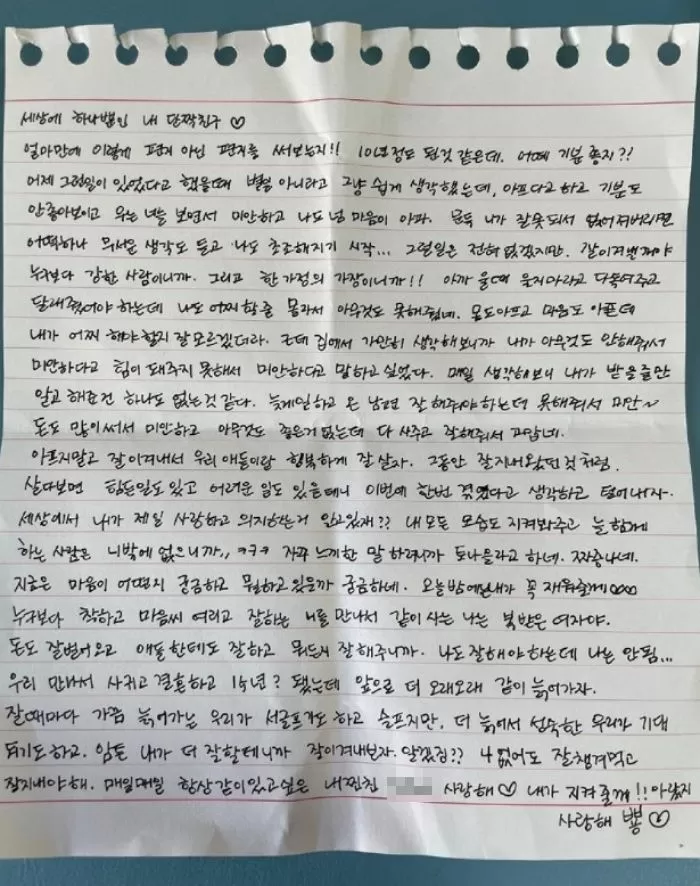 세상에 하나뿐인 내 단짝친구 ♡
얼마만에 이렇게 편지 아닌 편지를 써보는지!! 10년정도 된것 같은데. 어때 기분 좋지?!
어제 그런일이 있었다고 했을때 별일 아니라고 그냥 쉽게 생각했는데, 아프다고하고 기분도
안좋아보이고 우는 너를 보면서 미안하고 나도 넘 마음이 아파. 문득 니가 잘못되서 없어져버리면
어떡하나 무서운 생각도 들고 나도 초조해지기 시작... 그런일은 전혀 없겠지만. 잘이겨낼꺼야
누구보다 강한 사람이니까. 그리고 한 가정의 가장이니까!! 아까 울때 울지마라고 다독여주고
달래줬어야 하는데 나도 어찌할줄 몰라서 아무것도 못해줬네. 몸도아프고 마음도 아픈데
내가 어찌 해야할지 잘모르겠더라. 근데 집에서 가만히 생각해보니까 내가 아무것도 안해줘서
미안하다고 힘이 돼주지 못해서 미안하다고 말하고 싶었다. 매일 생각해보니 내가 받을줄만
알고 해준건 하나도 없는것 같다. 늦게일하고 온 남편 잘 해줘야하는데 못해줘서 미안~
돈도 많이써서 미안하고 아무것도 좋은거 없는데 다 사주고 잘해줘서 고맙네.
아프지말고 잘이겨내서 우리 애들이랑 행복하게 잘 살자. 그동안 잘지내왔던 것 처럼.
살다보면 힘든일도 있고 어려운 일도 있을테니 이번에 한번 겪었다고 생각하고 털어내자.
세상에서 내가 제일 사랑하고 의지하는거 알고있재?? 내 모든 모습도 지켜봐주고 늘 함께
하는 사람은 니밖에 없으니까,, ㅋㅋㅋ 자꾸 느끼한 말 하려니까 토나올라고 하네. 짜증나네.
지금은 마음이 어떤지 궁금하고 뭐하고 있을까 궁금하네. 오늘밤에는내가 꼭 재워줄께
누구보다 착하고 마음씨 여리고 잘하는 니를 만나서 같이 사는 나는 복받은 여자야.
돈도 잘벌어오고 애들한테도 잘하고 뭐든지 잘해주니까. 나도잘해야하는데 나는 안됨...
우리 만나서 사귀고 결혼하고 15년? 됐는데 앞으로 더 오래오래 같이 늙어가자.
잘때마다 가끔 늙어가는 우리가 서글프기도 하고 슬프지만, 더 늙어서 성숙한 우리가 기대
되기도하고. 암튼 내가 더 잘할테니까 잘이겨내보자. 알겠짐?? 나 없어도 잘챙겨먹고
잘지내야해. 매일매일 항상같이있고싶은 내찐친 사랑해♡ 내가 지켜줄께!! 아랐지
사랑해 뿅 ♡